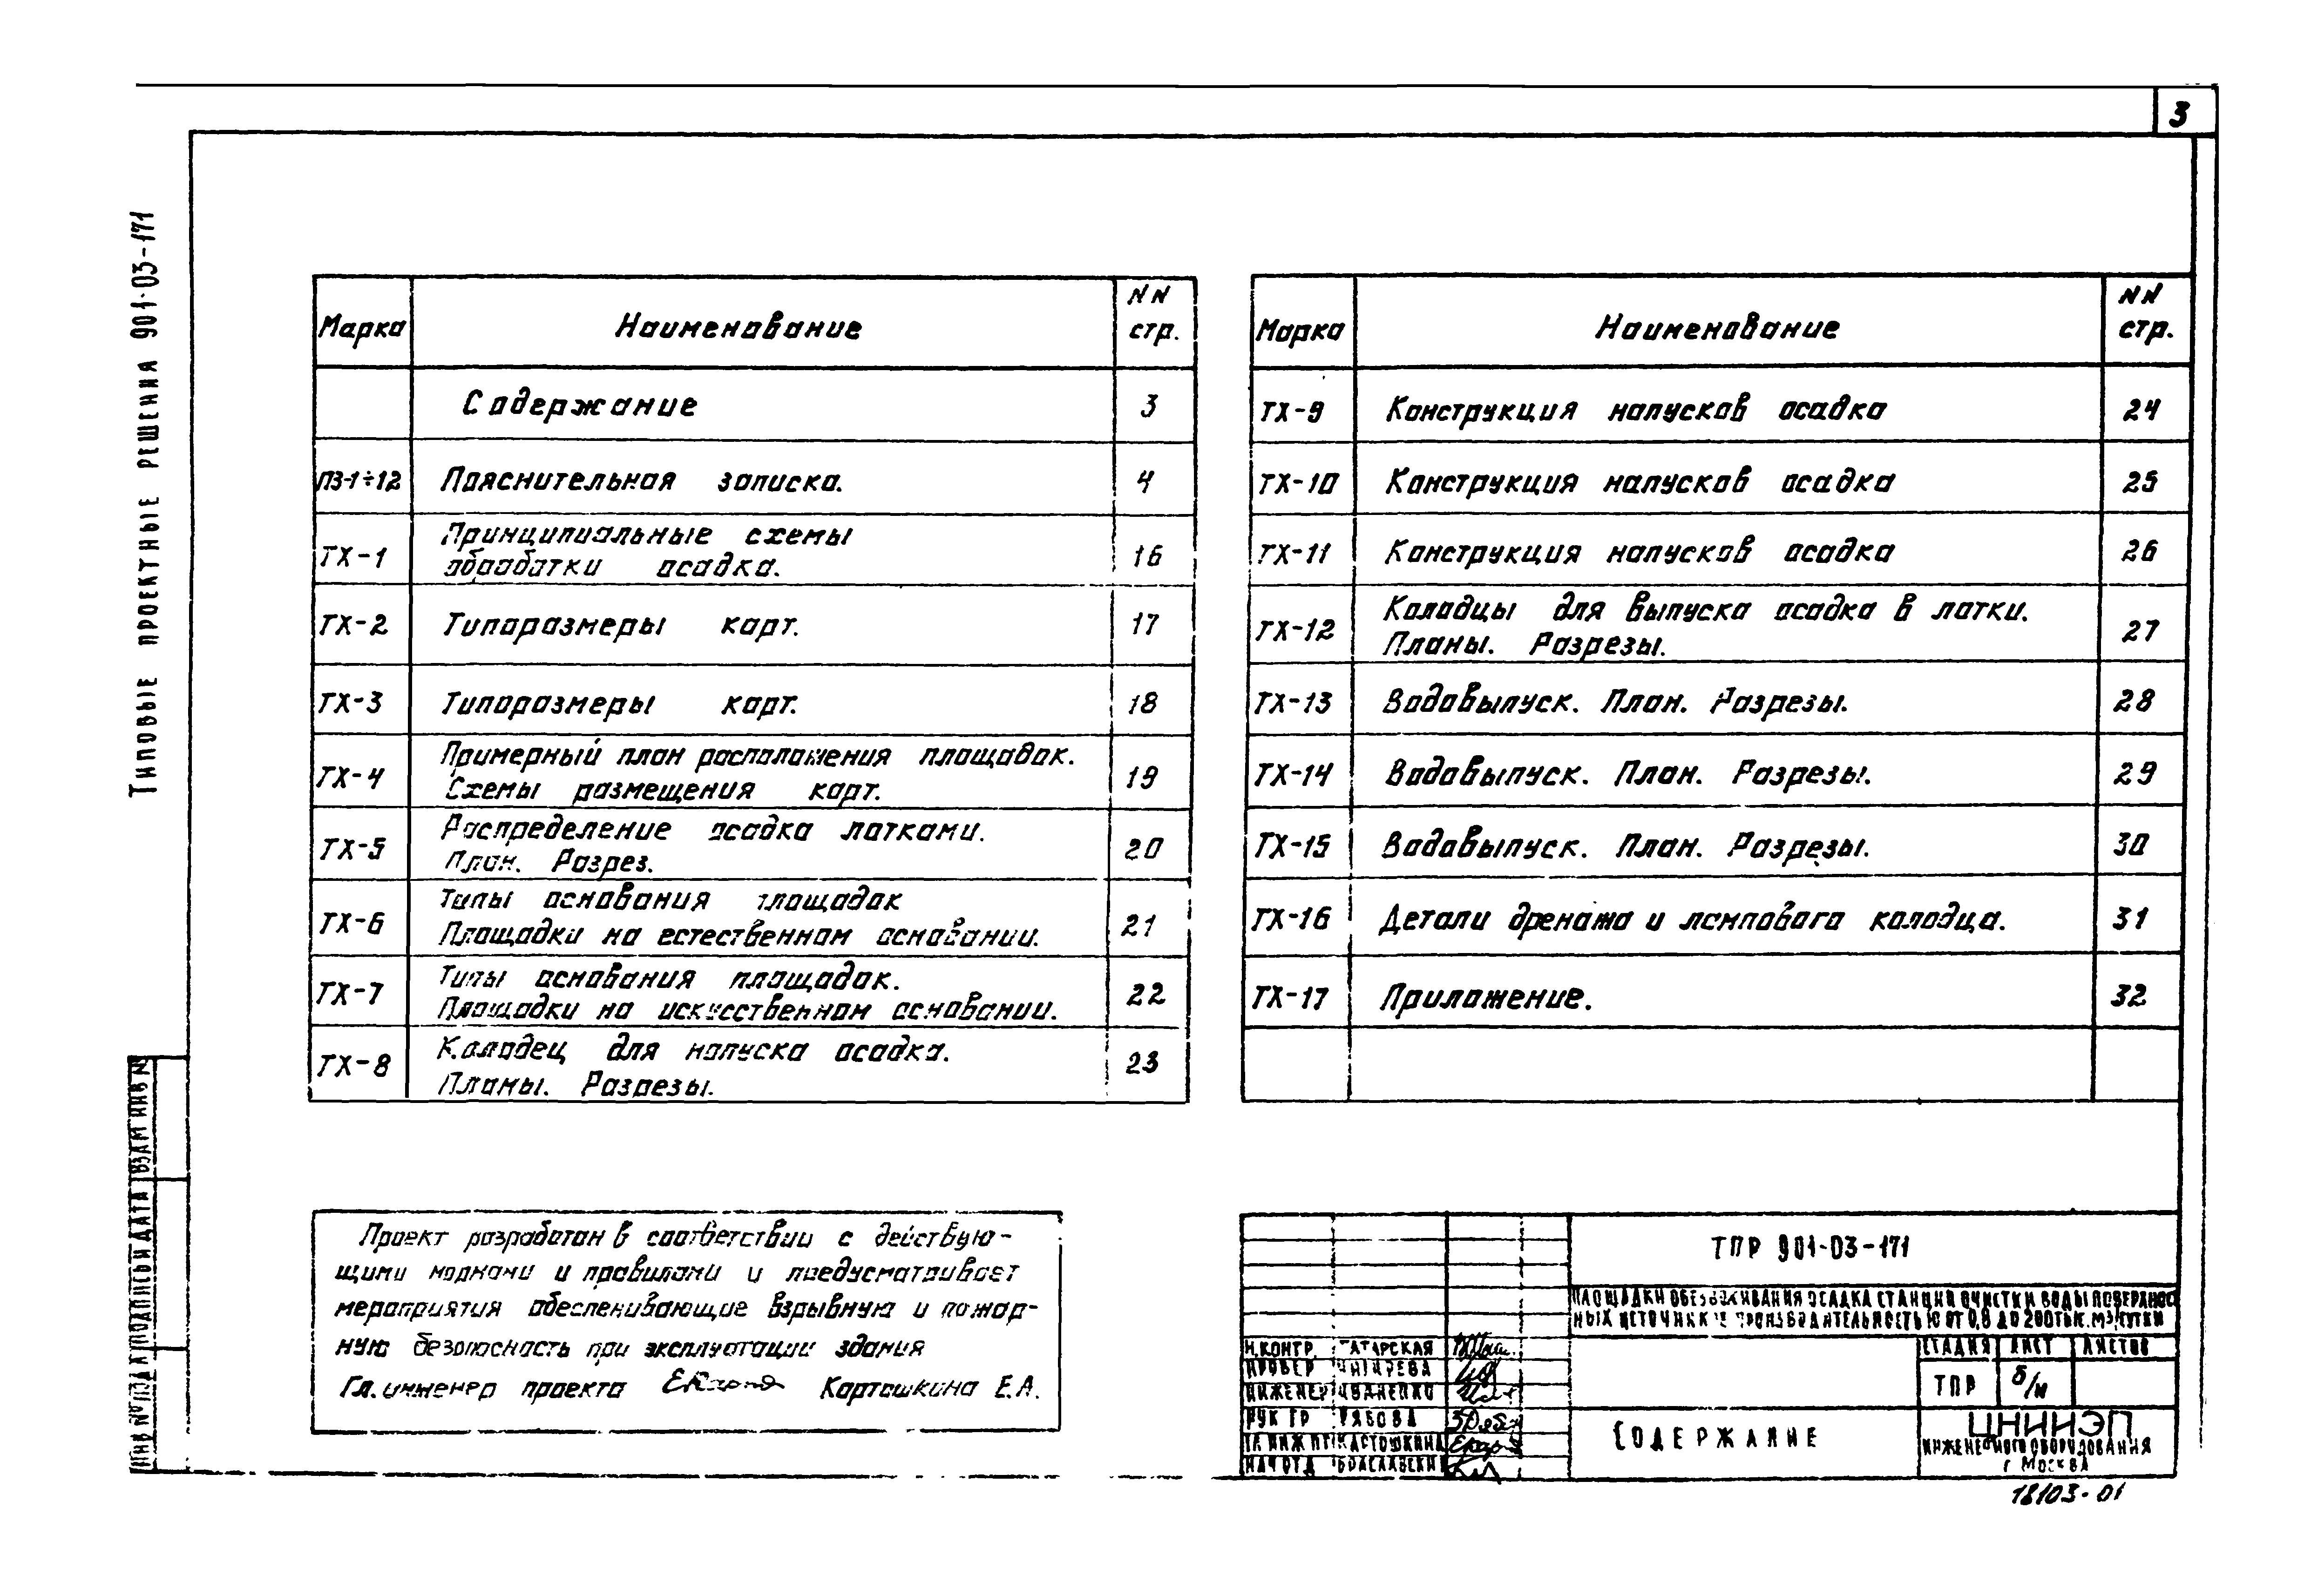 3
Типовые проектные решения 901-03-171
Марка Наименование NN стр.
Содержание 3
ПЗ-1÷12 Пояснительная записка. 4
ТХ-1 Принципиальные схемы
обработки осадка. 16
ТХ-2 Типоразмеры карт. 17
ТХ-3 Типоразмеры карт. 18
ТХ-4 Примерный план расположения площадок.
Схемы размещения карт. 19
ТХ-5 Распределение осадка лотками.
План. Разрез. 20
ТХ-6 Типы основания площадок
Площадки на естественном основании. 21
ТХ-7 Типы основания площадок.
Площадки на искусственном основании. 22
ТХ-8 Колодец для напуска осадка.
Планы. Разрезы. 23
Марка Наименование NN стр.
ТХ-9 Конструкция напусков осадка 24
ТХ-10 Конструкция напусков осадка 25
ТХ-11 Конструкция напусков осадка 26
ТХ-12 Колодцы для выпуска осадка в лотки.
Планы. Разрезы. 27
ТХ-13 Водовыпуск. План. Разрезы. 28
ТХ-14 Водовыпуск. План. Разрезы. 29
ТХ-15 Водовыпуск. План. Разрезы. 30
ТХ-16 Детали дренажа и лампового колодца. 31
ТХ-17 Приложение. 32
Проект разработан в соответствии с действую-
щими нормами и правилами и предусматривает
мероприятия обеспечивающие взрывную и пожар-
ную безопасность при эксплуатации здания
Гл. инженер проекта Картошкина Е.А.
ТПР 901-03-171
Площадки обезвоживания осадка станций очистки воды поверхност
ных источников производительностью от 0,8 до 200 тыс. м3/сутки
Н.контр. Татарская
Провер Чигирева
Инженер Иваненко
Рук гр Рябова
Гл инж пр Картошкина
Нач отд Браславский
Стадия Лист Листов
ТПР б/н
Содержание
ЦНИИЭП
инженерного оборудования
г Москва
18103-01
Инв № подл Подпись и дата Взам инв №